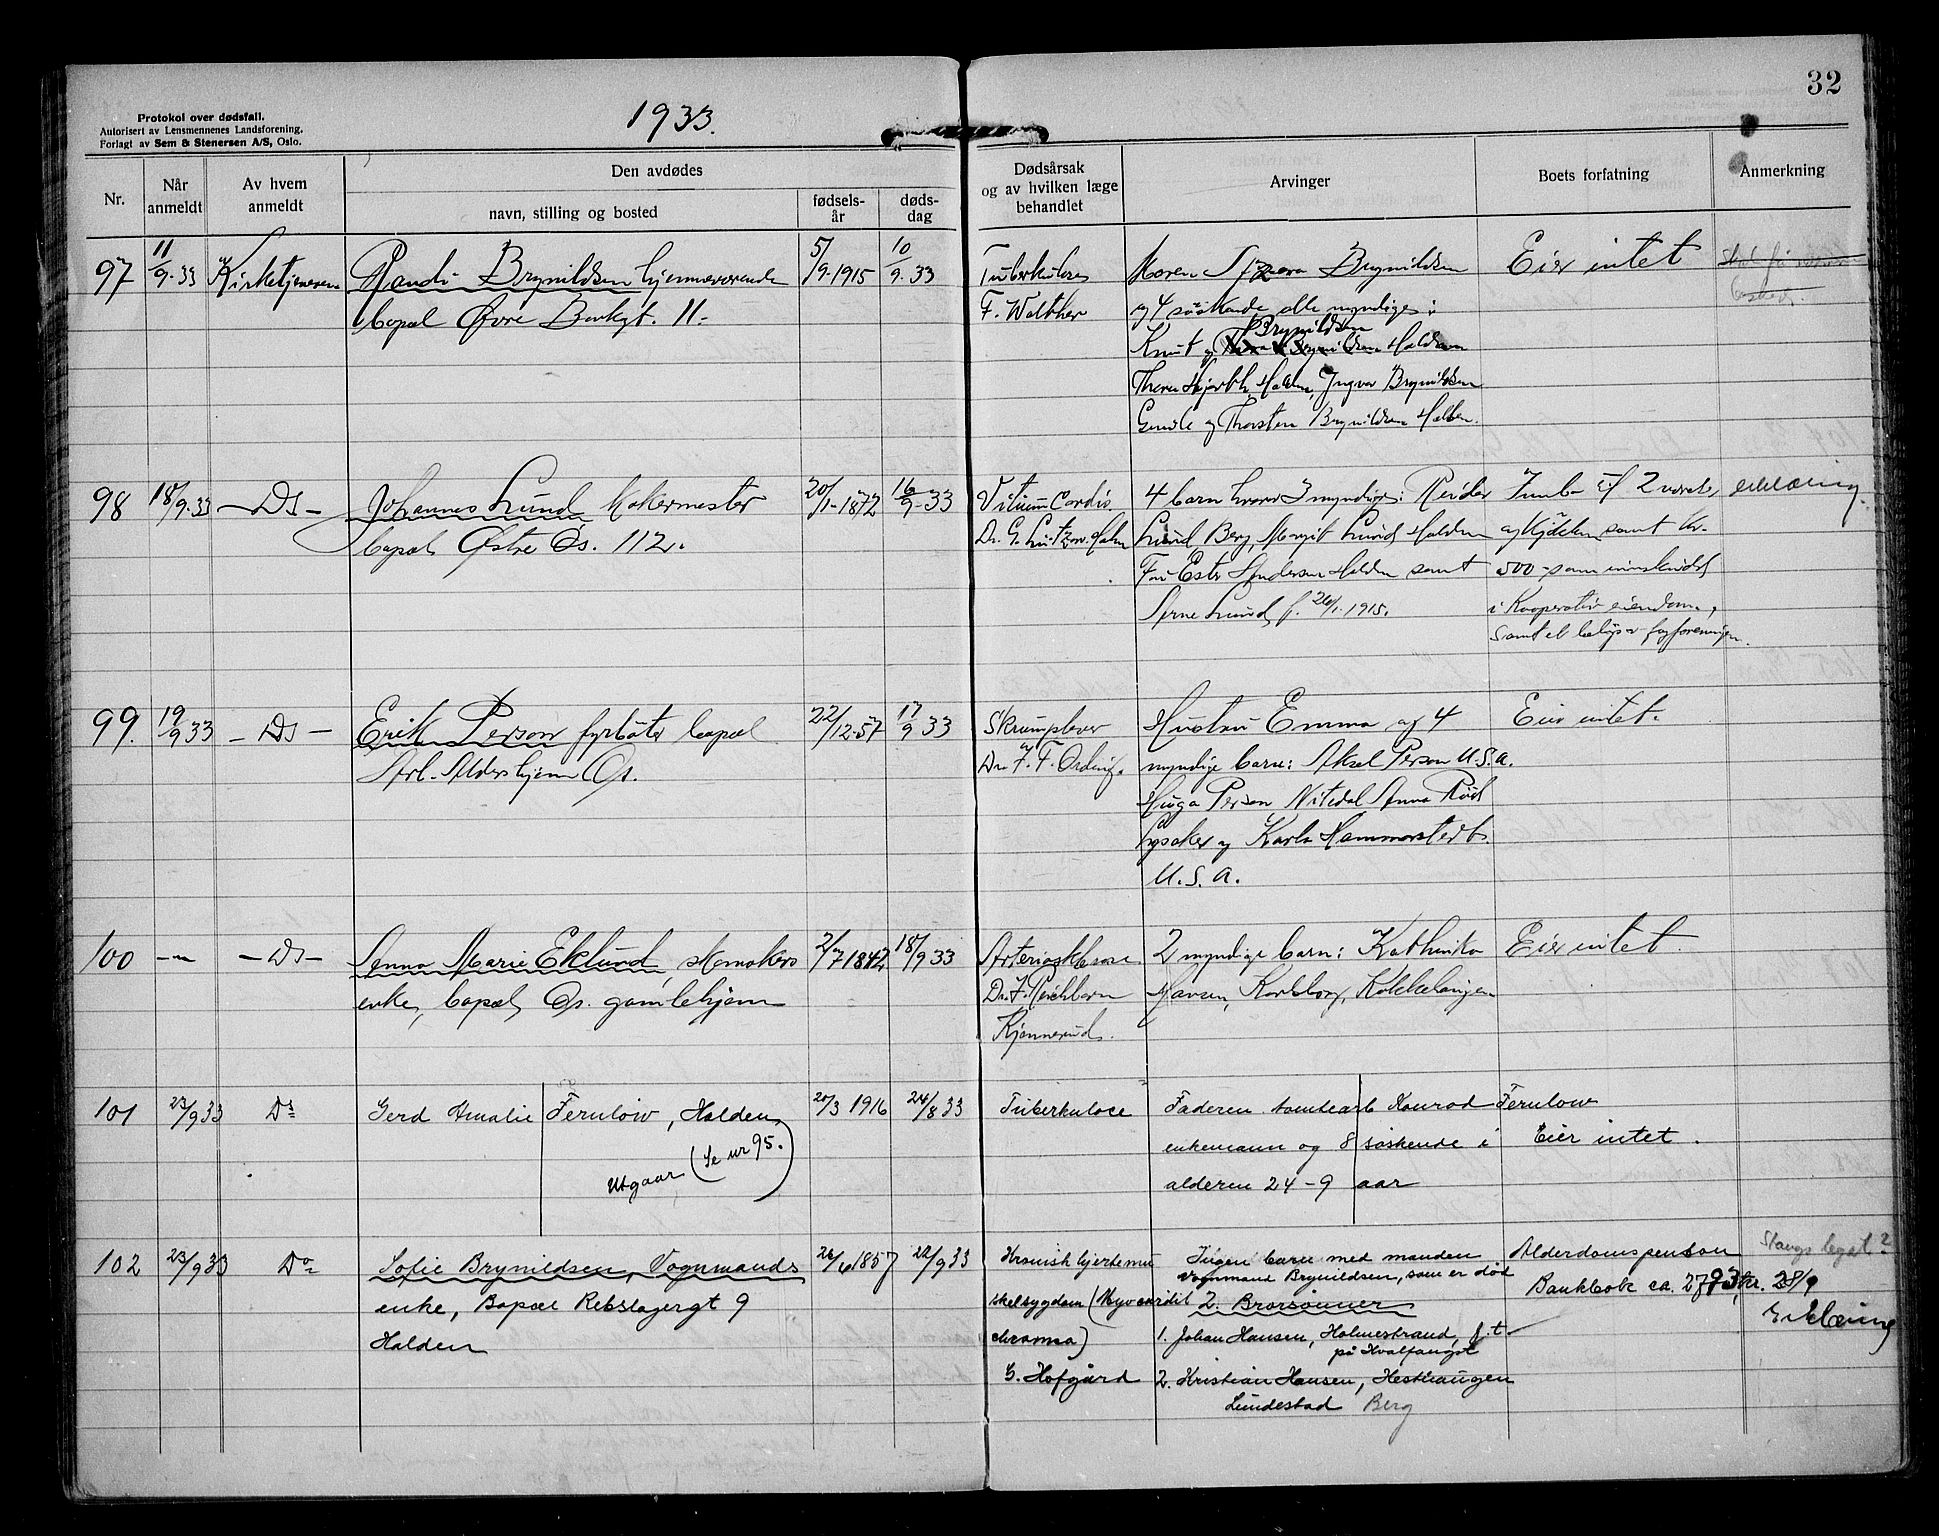 32
1933.
Protokol over dødsfall.
Autorisert av Lensmennenes Landsforening.
Forlagt av Sem & Stenersen A/S, Oslo.
Nr.
Når anmeldt
Av hvem anmeldt
Den avdødes
navn, stilling og bosted
fødsels-år
døds-dag
Dødsårsak og av hvilken læge behandlet
Arvinger
Boets forfatning
Anmerkning
97 11/9-33 Kirketjeneren Randi Brynildsen hjemmeværende 5/9-1915 10/9-33 Tuberkulose Moren Brynildsen Eier intet
bopæl Øvre Bankgt. 11. F. Walther og 4 søskende alle myndige:
Brynildsen
Knut og Halden
Hjorth, Halden, Ingvar Brynildsen
og Thorsten Brynildsen Halden.
98 18/9-33 - Ds - Johannes Lund Makermester 20/1-1872 16/9-33 Vitium Cordis. 4 barn hvorav 3 myndige: Reidar Innbo i 2 værelse erklæring.
bopæl Østre Øs. 112. Dr. G. Lützow-Holm Lund Berg, Margit Lund Halden og kjøkken samt kr.
Fru Ester Andersen Halden samt 500 - som innskudd
Arne Lund f. 26/1. 1915. i Kooperativ eiendom,
samt et beløp av fagforeningen.
99. 19/9 33 - Ds - Erik Person fyrbøter bopæl 22/12-57 17/9 33 Skrumplever Hustru Emma og 4 Eier intet.
Arb. Aldershjem Os. Dr. F. F. Ording. myndige barn: Aksel Person U.S.A.
Hugo Person Nitedal Anna Rød
Lysaker og Karla Hammarstedt
U.S.A.
100 - „ - - Ds - Anna Marie Eklund, skomakers 2/7 1842 18/9 33 Arteriosklerose 2 myndige barn: Kathinka Eier intet
enke, bopæl, Os. gamlehjem Dr. F. Reichborn Hansen, Karlsborg, Kokkelangen
Kjennerud.
101 23/9 33 Ds Gerd Amalie Fernlöw, Halden 20/3 1916 24/8 33 Tuberkulose Faderen tomtearb Konrad Fernlow
Utgaar (Se nr 95.) enkemann og 8 søskende i Eier intet.
alderen 24-9 aar
102 23/9 33 Do Sofie Brynildsen, Vognmands 26/6 1857 22/9 33 Kronisk hjertemu Ingen barn med manden Alderdomspension Stangs legat?
enke, Bopæl Rebslagergt 9 skelsygdom (Myocardit vognmand Brynildsen, som er død Bankbok ca. 2793 kr. 28/9
Halden chronica) 2. Brorsønner Erklæring
1. Johan Hansen, Holmestrand, f. t.
på Hvalfangst
G. Hofgård 2. Kristian Hansen, Hesthaugen
Lundestad Berg